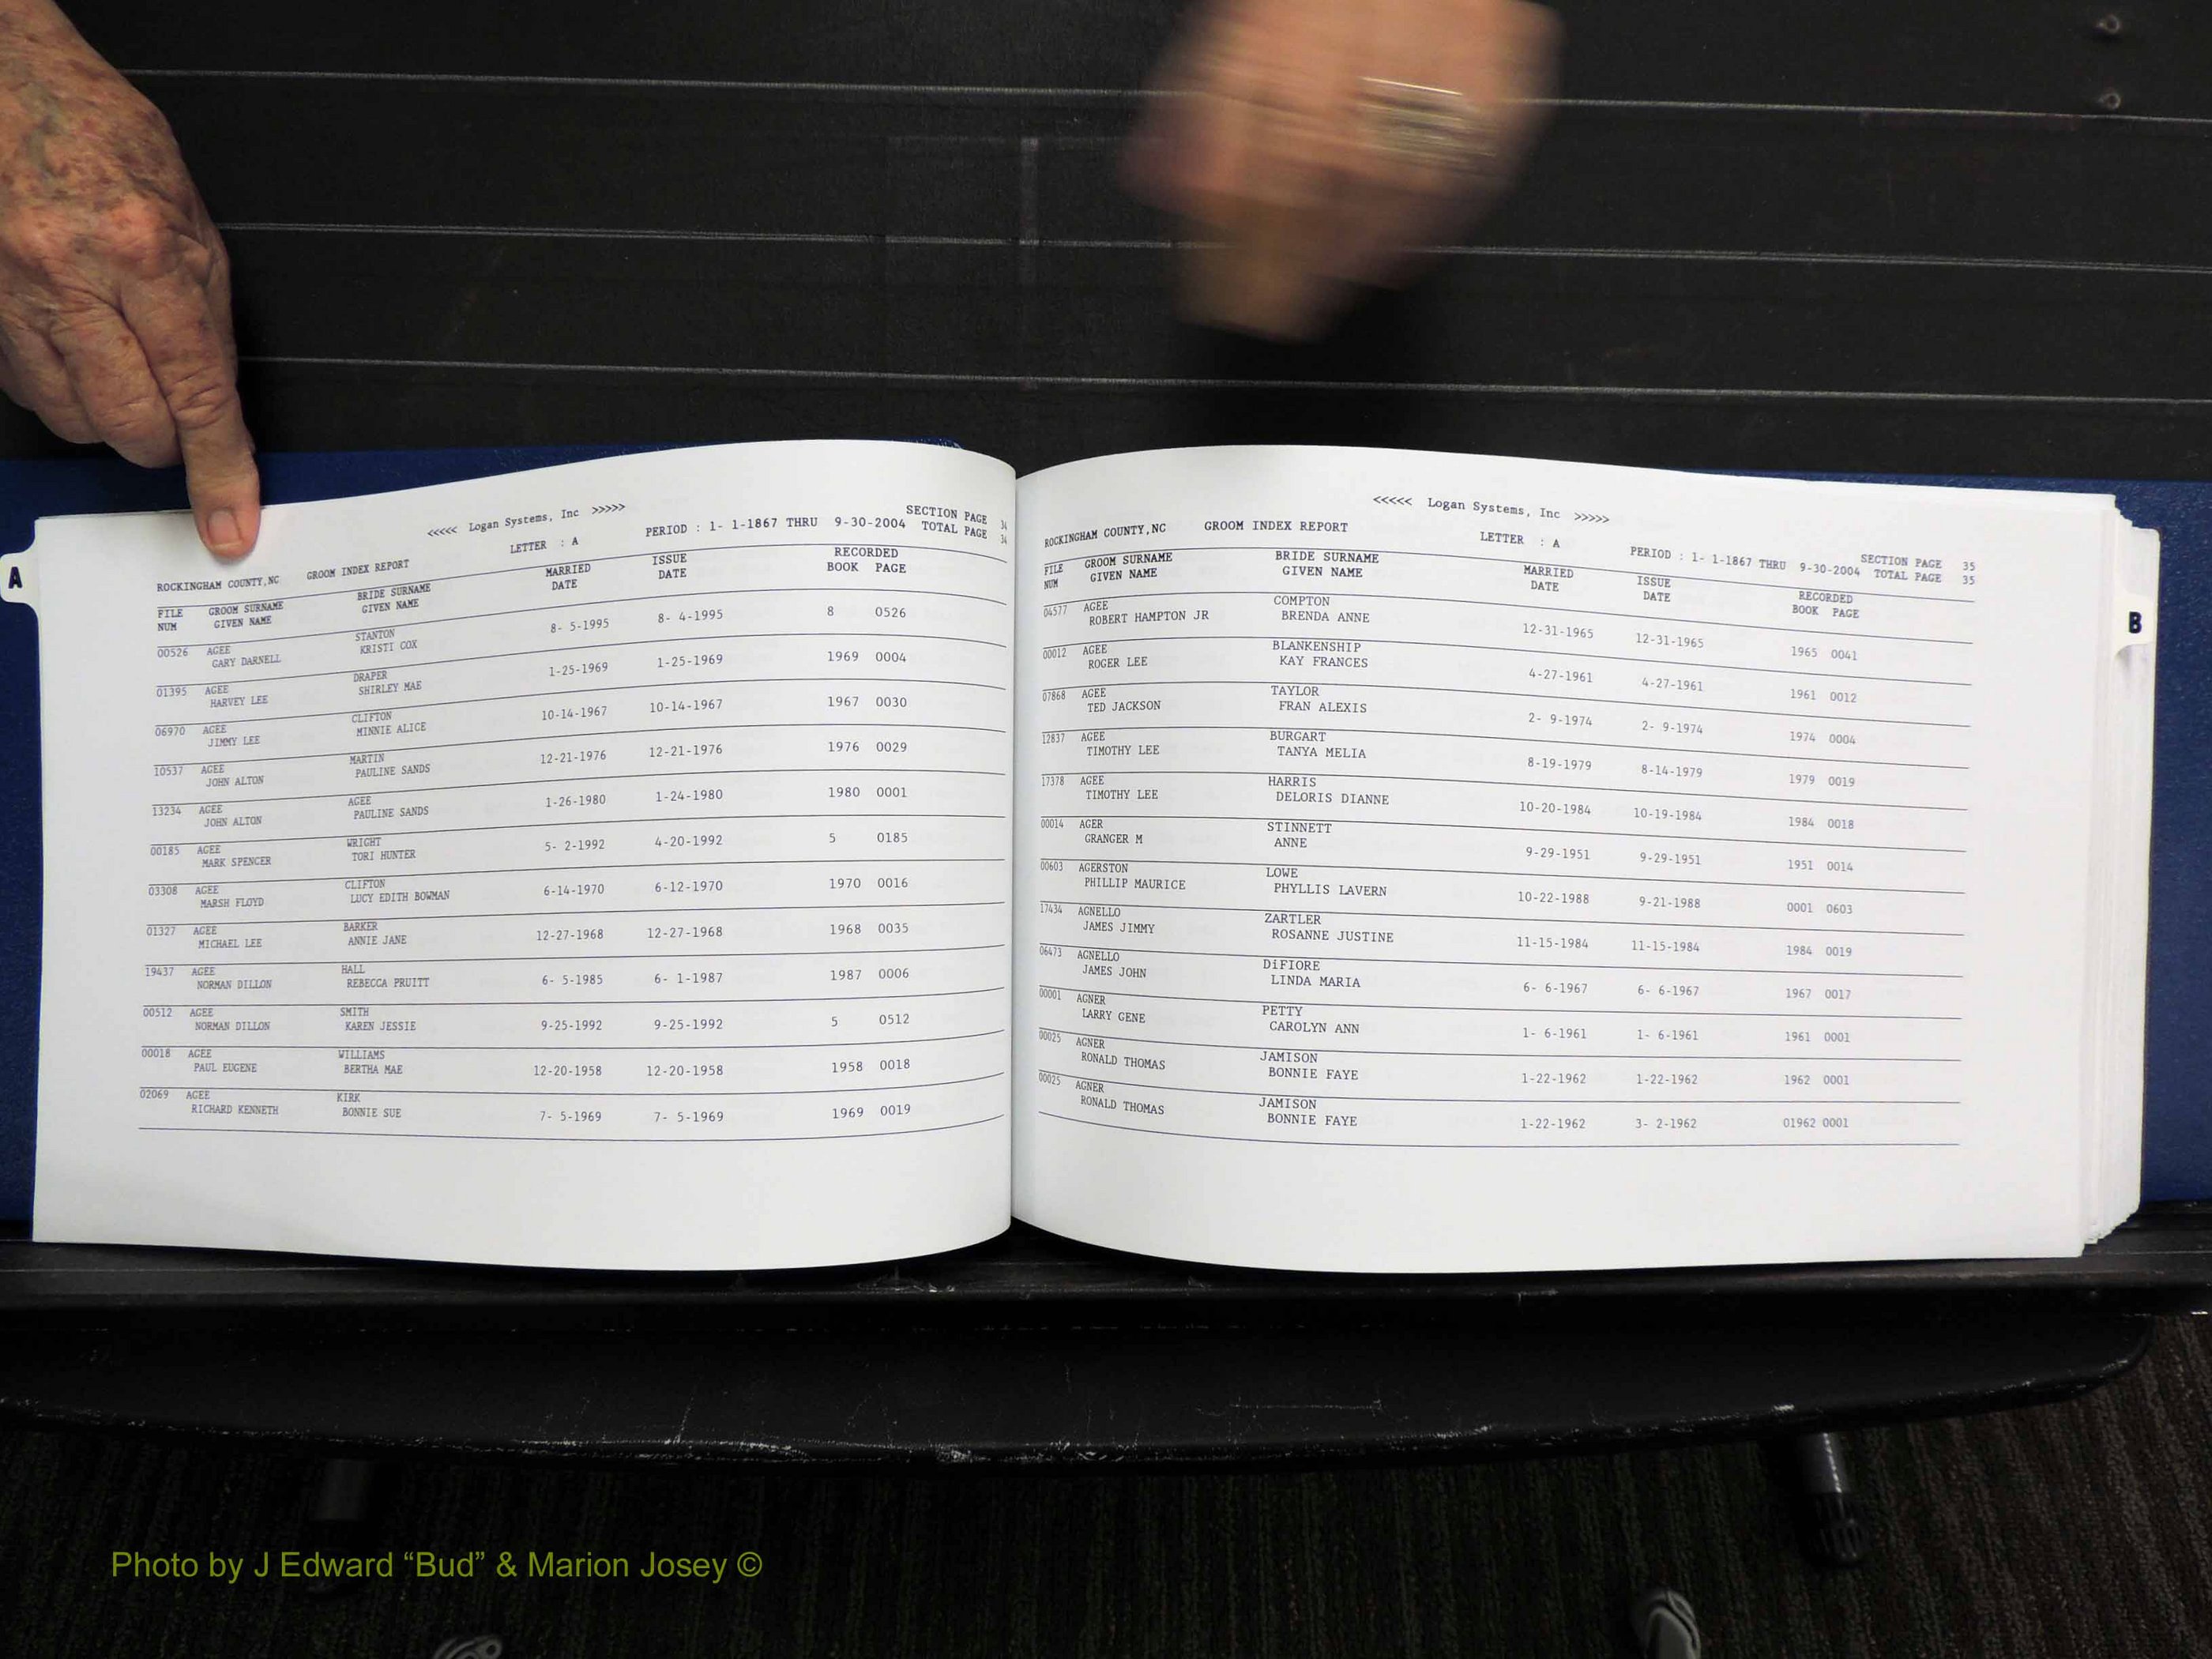 A
<<<<< Logan Systems, Inc >>>>>
SECTION PAGE 34
ROCKINGHAM COUNTY,NC GROOM INDEX REPORT LETTER : A PERIOD : 1- 1-1867 THRU 9-30-2004 TOTAL PAGE 34
FILE GROOM SURNAME BRIDE SURNAME MARRIED ISSUE RECORDED
NUM GIVEN NAME GIVEN NAME DATE DATE BOOK PAGE
00526 AGEE STANTON
GARY DARNELL KRISTI COX 8- 5-1995 8- 4-1995 8 0526
01395 AGEE DRAPER
HARVEY LEE SHIRLEY MAE 1-25-1969 1-25-1969 1969 0004
06970 AGEE CLIFTON
JIMMY LEE MINNIE ALICE 10-14-1967 10-14-1967 1967 0030
10537 AGEE MARTIN
JOHN ALTON PAULINE SANDS 12-21-1976 12-21-1976 1976 0029
13234 AGEE AGEE
JOHN ALTON PAULINE SANDS 1-26-1980 1-24-1980 1980 0001
00185 AGEE WRIGHT
MARK SPENCER TORI HUNTER 5- 2-1992 4-20-1992 5 0185
03308 AGEE CLIFTON
MARSH FLOYD LUCY EDITH BOWMAN 6-14-1970 6-12-1970 1970 0016
01327 AGEE BARKER
MICHAEL LEE ANNIE JANE 12-27-1968 12-27-1968 1968 0035
19437 AGEE HALL
NORMAN DILLON REBECCA PRUITT 6- 5-1985 6- 1-1987 1987 0006
00512 AGEE SMITH
NORMAN DILLON KAREN JESSIE 9-25-1992 9-25-1992 5 0512
00018 AGEE WILLIAMS
PAUL EUGENE BERTHA MAE 12-20-1958 12-20-1958 1958 0018
02069 AGEE KIRK
RICHARD KENNETH BONNIE SUE 7- 5-1969 7- 5-1969 1969 0019
<<<<< Logan Systems, Inc >>>>>
SECTION PAGE 35
ROCKINGHAM COUNTY,NC GROOM INDEX REPORT LETTER : A PERIOD : 1- 1-1867 THRU 9-30-2004 TOTAL PAGE 35
FILE GROOM SURNAME BRIDE SURNAME MARRIED ISSUE RECORDED
NUM GIVEN NAME GIVEN NAME DATE DATE BOOK PAGE
04577 AGEE COMPTON
ROBERT HAMPTON JR BRENDA ANNE 12-31-1965 12-31-1965 1965 0041
00012 AGEE BLANKENSHIP
ROGER LEE KAY FRANCES 4-27-1961 4-27-1961 1961 0012
07868 AGEE TAYLOR
TED JACKSON FRAN ALEXIS 2- 9-1974 2- 9-1974 1974 0004
12837 AGEE BURGART
TIMOTHY LEE TANYA MELIA 8-19-1979 8-14-1979 1979 0019
17378 AGEE HARRIS
TIMOTHY LEE DELORIS DIANNE 10-20-1984 10-19-1984 1984 0018
00014 AGER STINNETT
GRANGER M ANNE 9-29-1951 9-29-1951 1951 0014
00603 AGERSTON LOWE
PHILLIP MAURICE PHYLLIS LAVERN 10-22-1988 9-21-1988 0001 0603
17434 AGNELLO ZARTLER
JAMES JIMMY ROSANNE JUSTINE 11-15-1984 11-15-1984 1984 0019
06473 AGNELLO DiFIORE
JAMES JOHN LINDA MARIA 6- 6-1967 6- 6-1967 1967 0017
00001 AGNER PETTY
LARRY GENE CAROLYN ANN 1- 6-1961 1- 6-1961 1961 0001
00025 AGNER JAMISON
RONALD THOMAS BONNIE FAYE 1-22-1962 1-22-1962 1962 0001
00025 AGNER JAMISON
RONALD THOMAS BONNIE FAYE 1-22-1962 3- 2-1962 01962 0001
B
Photo by J Edward “Bud” & Marion Josey ©